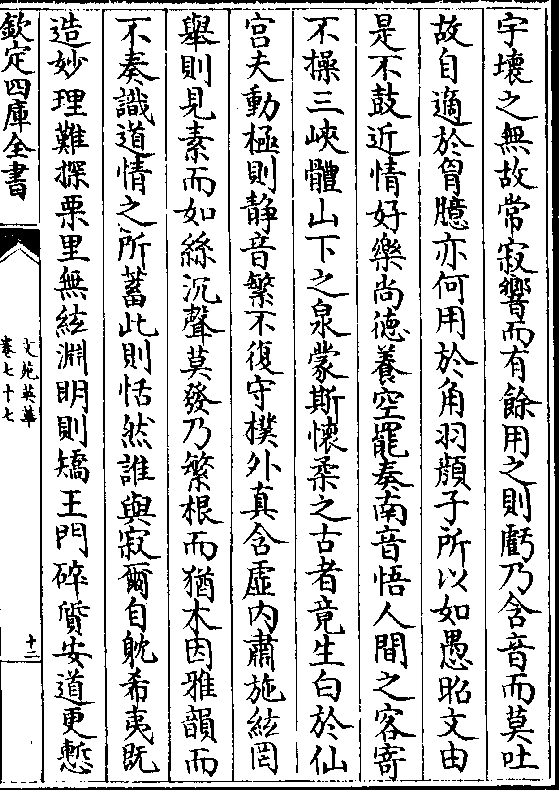 宇壞之無故常寂響而有餘用之則虧乃含音而莫吐
故自適於胷臆亦何用於角羽顔子所以如愚昭文由
是不鼓近情好樂尚徳養空罷奏南音悟人間之客寄
不操三峽體山下之泉蒙斯懷柔之古者竟生白於仙
宫夫動極則静音繁不復守樸外真含虛内肅施絃罔
舉則見素而如絲沉聲莫發乃繁根而猶木因雅韻而
不奏識道情之所蓄此則恬然誰與寂爾自躭希夷既
造妙理難探栗里無絃淵明則矯王門碎質安道更慙
欽定四庫全書
文苑英華
卷七十七
十三